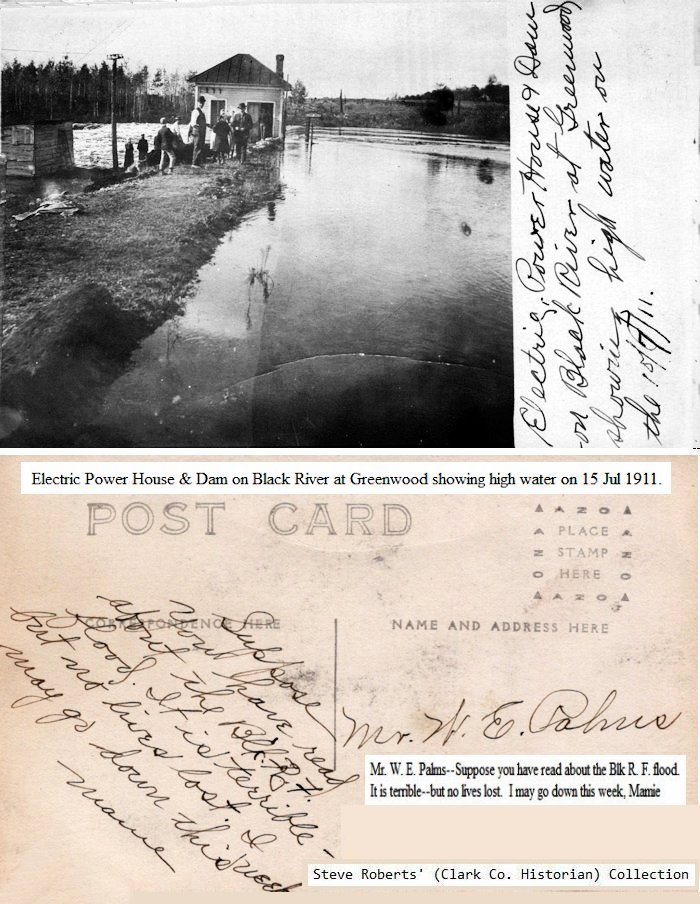 Electric Power House & Dam
on Black River at Greenwood
showing high water on
the
Electric Power House & Dam on Black River at Greenwood showing high water on 15 Jul 1911.
POST CARD
AZO
PLACE
STAMP
HERE
AZO
CORRESPONDENCE HERE
NAME AND ADDRESS HERE
Suppose
you have read
about the Blk R. F.
flood. It is terrible-
but no lives lost. I
may go down this week
Mamie
Mr. W. E. Palms
Mr. W. E. Palms--Suppose you have read about the Blk R. F. flood.
It is terrible--but no lives lost. I may go down this week, Mamie
Steve Roberts' (Clark Co. Historian) Collection